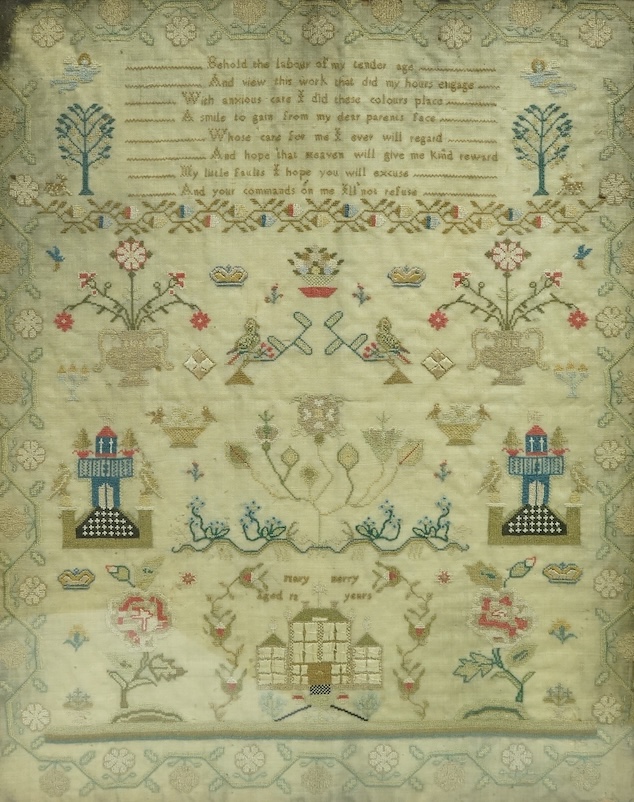 Behold the labour of my tender age
And view this work that did my hours engage
With anxious care I did these colours place
A smile to gain from my dear parents face
Whose care for me I ever will regard
And hope that Heaven will give me kind reward
My little faults I hope you will excuse
And your commands on me Ill not refuse
Mary Berry
aged 12 years